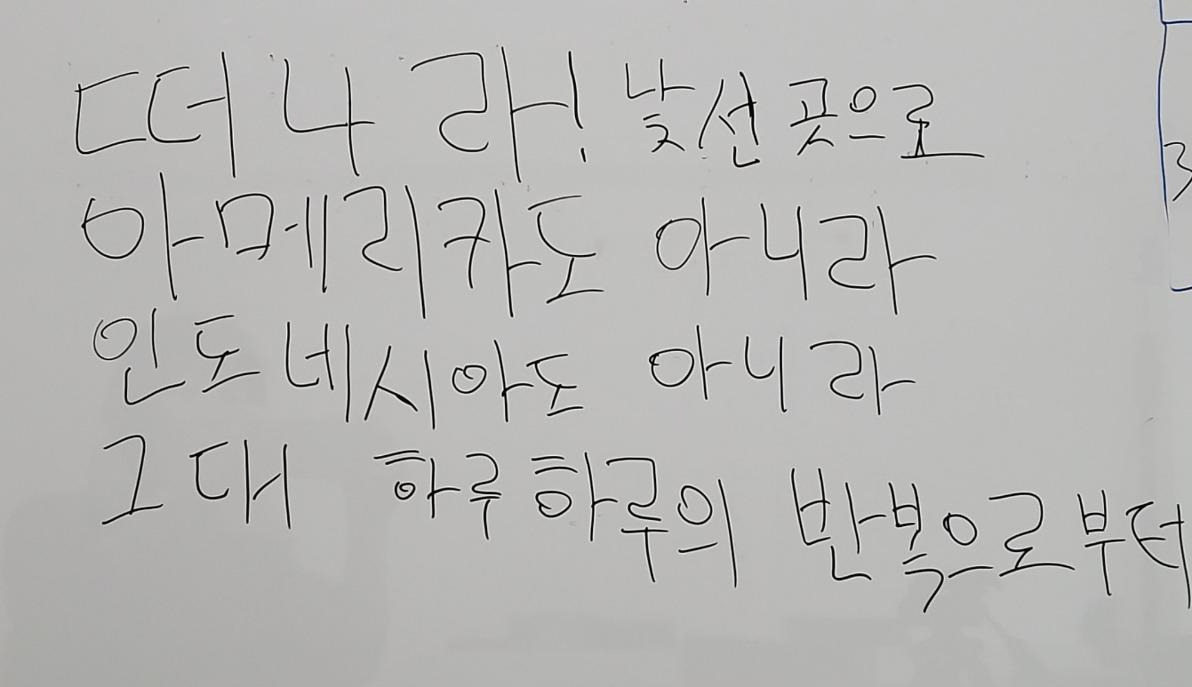 떠나라! 낯선 곳으로
아메리카도 아니라
인도네시아도 아니라
그대 하루하루의 반복으로부터
3